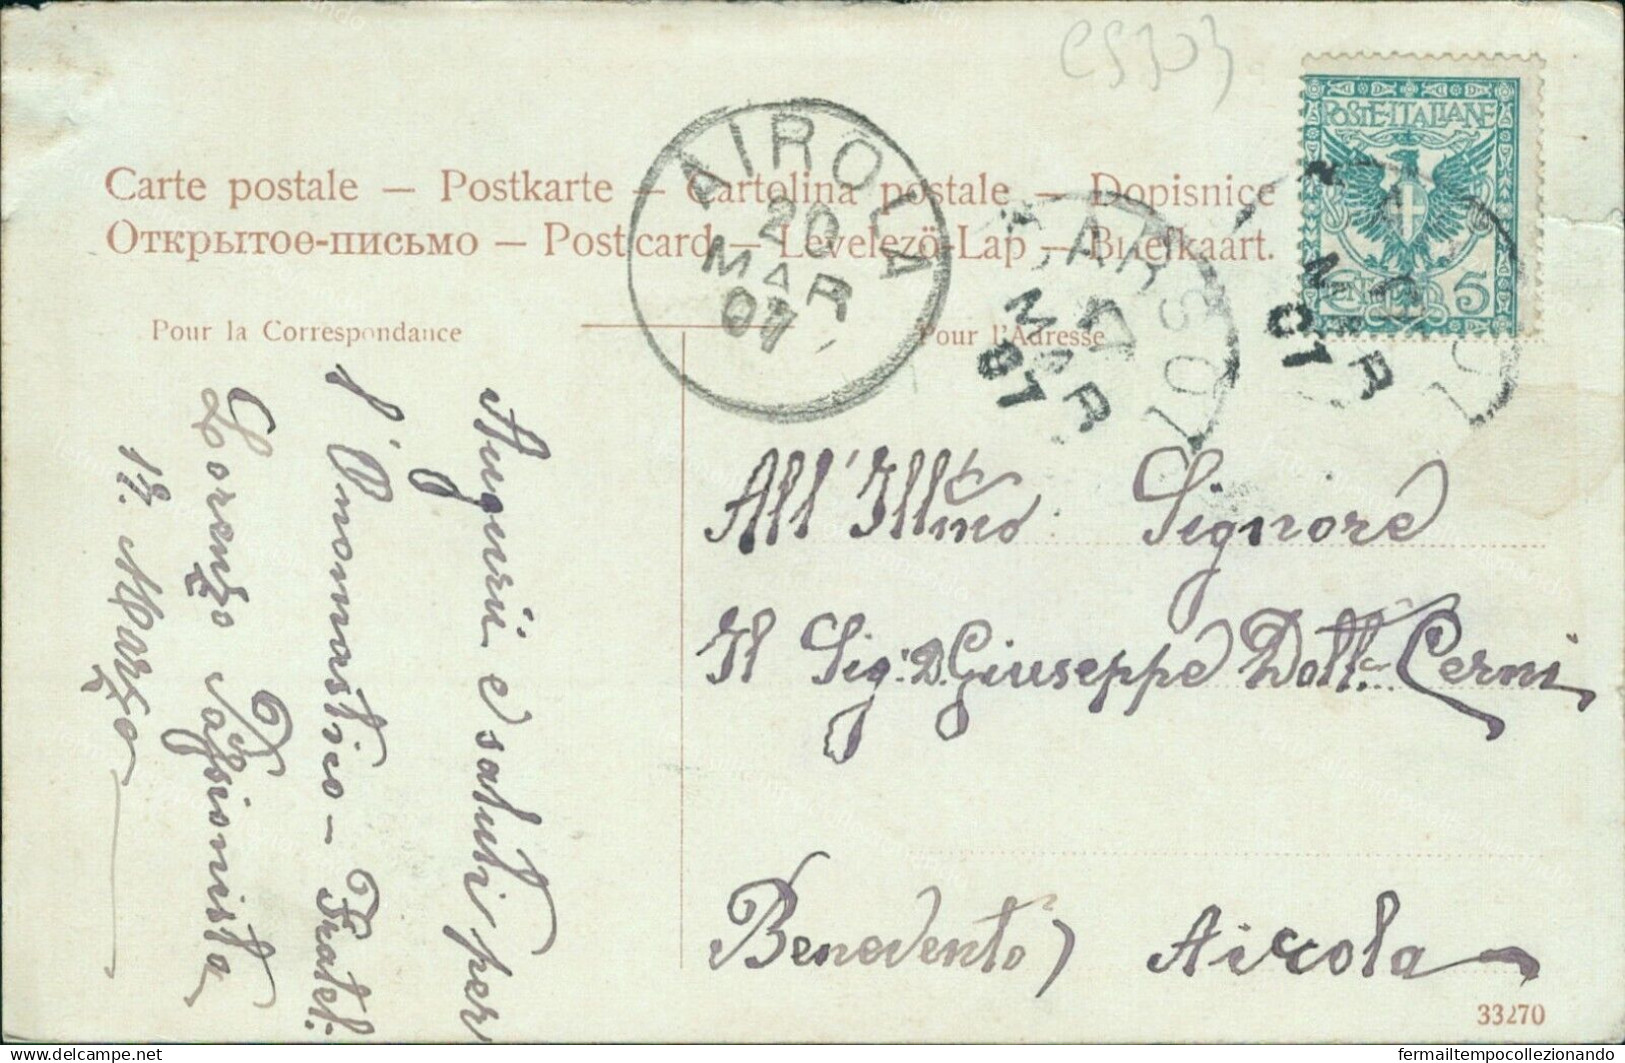 CS303
POSTE·ITALIANE
CENT. 5
AIROLA
20
MAR
07
CARSOLI
17
MAR
07
MAR
07
Carte postale — Postkarte — Cartolina postale — Dopisnice
Открытое-письмо — Post card — Levelezö-Lap — Briefkaart.
Pour la Correspondance
Pour l'Adresse
Augurii e saluti per
l'Onomastico - Fratel:
Lorenzo Passionista
17. Marzo
All'Illmo Signore
Il Sig: D. Giuseppe Dott. Cerni
Benevento) Airola
33270
delcampe.net
fermailtempocollezionando